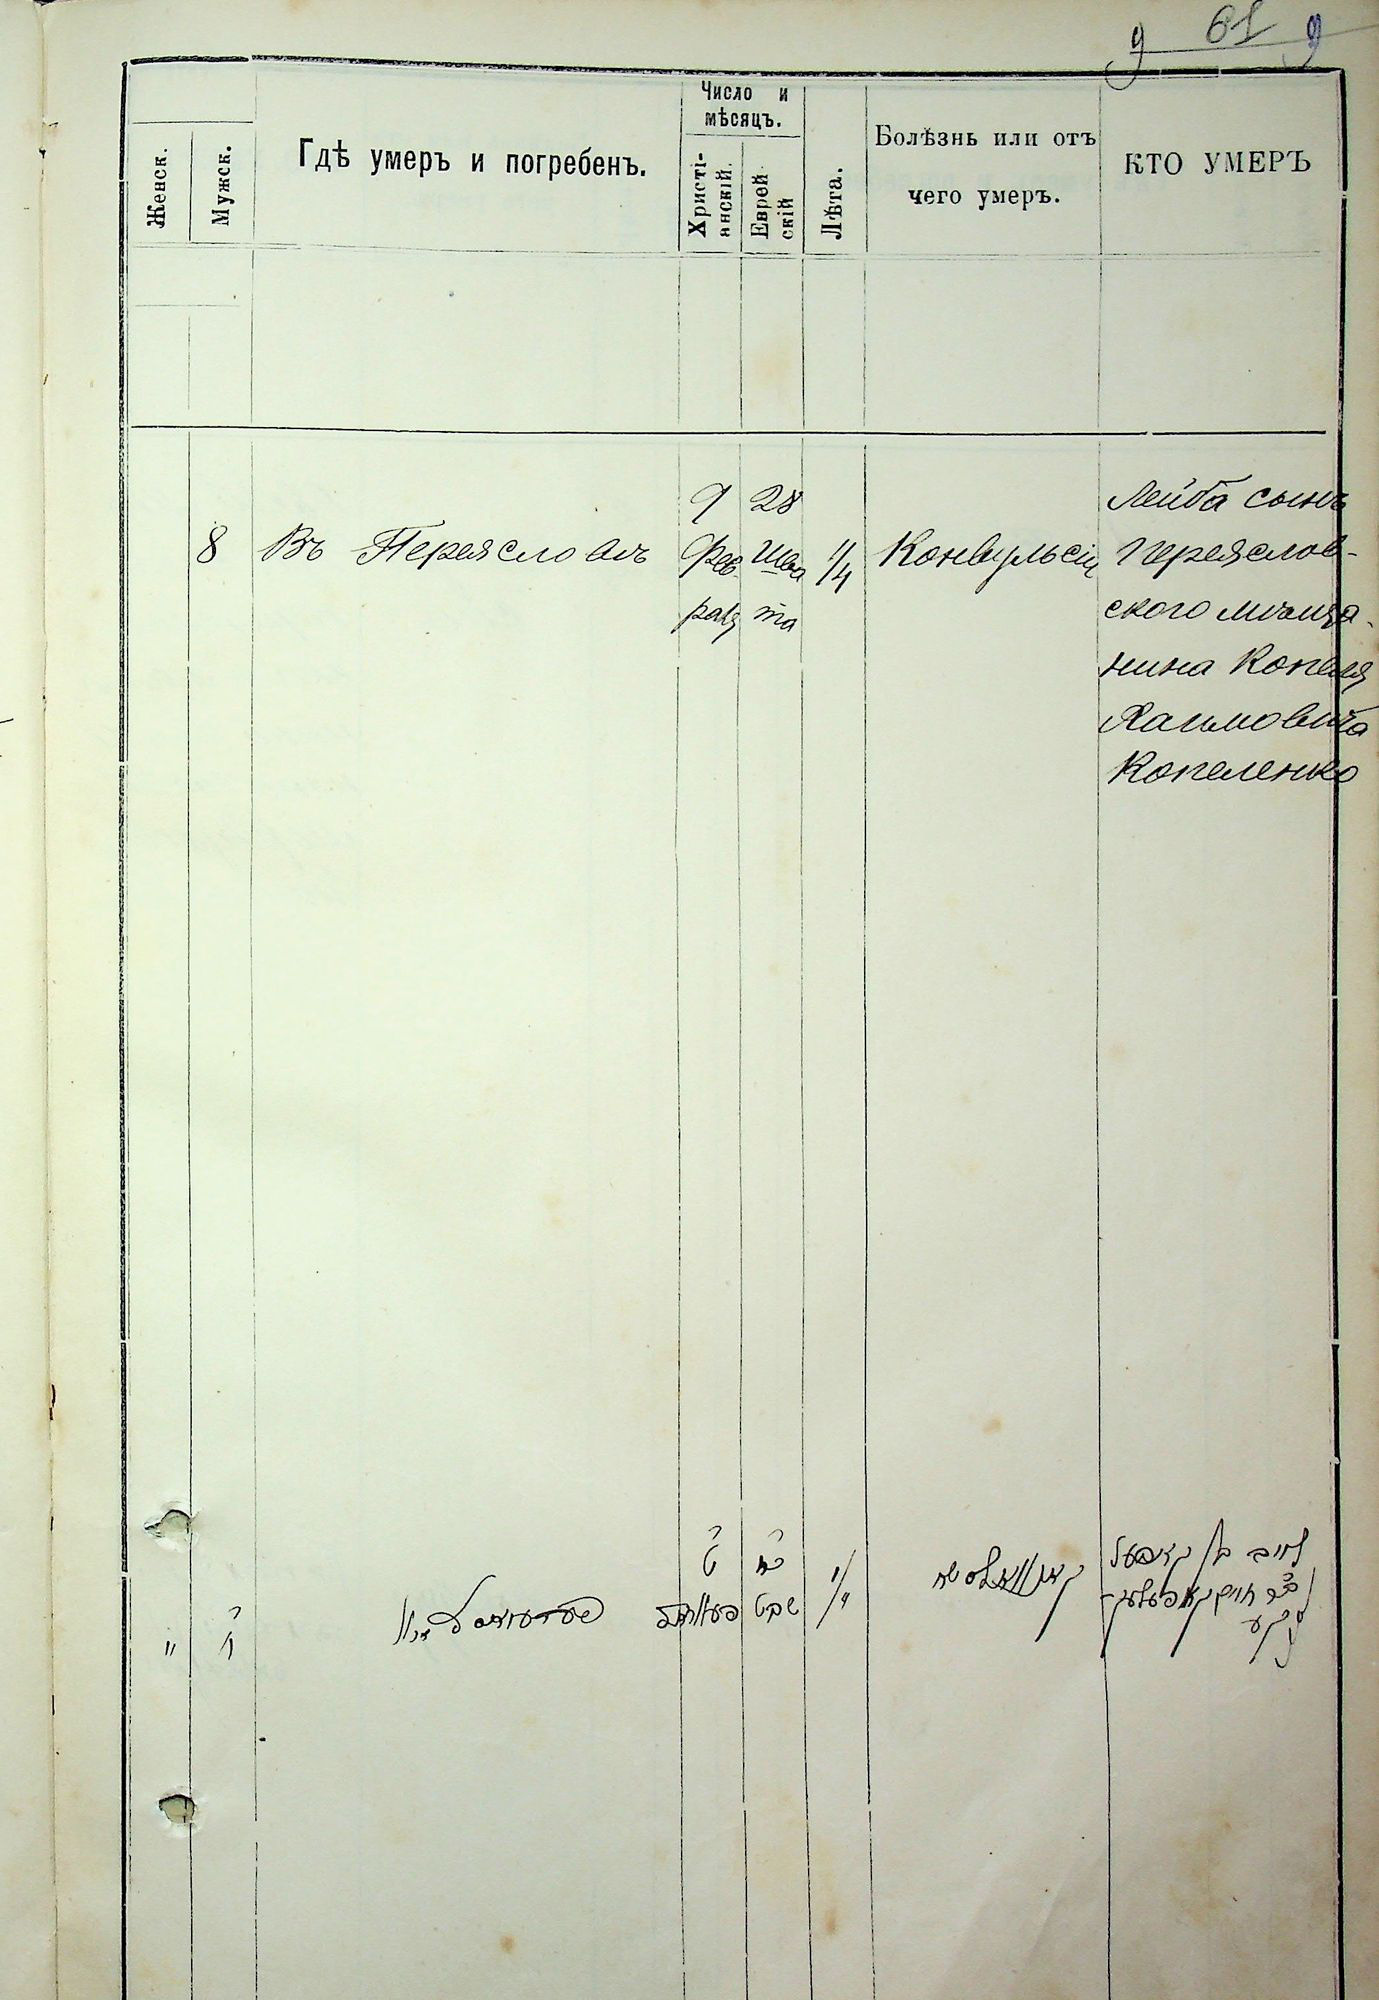 9 61 9
Женск.
Мужск.
Гдѣ умеръ и погребенъ.
Число и
мѣсяцъ.
Христі-
анскій.
Еврей
скій
Лѣта.
Болѣзнь или отъ
чего умеръ.
КТО УМЕРЪ
8
Въ Переяславѣ
9
Фев
раля
28
Шва
та
1/4
Конвульсіи
Лейба сынъ
Переяслов-
ского мѣща-
нина Копеля
Хаимовича
Копеленко
"
ח
ט
פעווראל
כח
שבט
1/4
לייב בן קאפעל